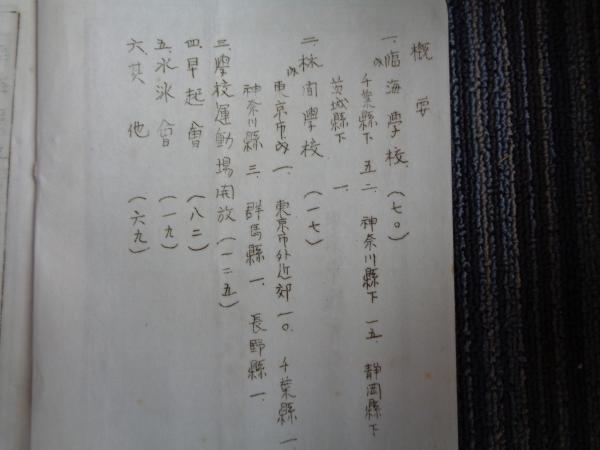 概要
一、臨海學校（七〇）
千葉縣下 五二、神奈川縣下 一五、静岡縣下
茨城縣下 一、
二、林間學校（一七）
東京市内 一、東京市外近郊 一〇、千葉縣 一
神奈川縣 三、群馬縣 一、長野縣 一、
三、學校運動場開放（一二五）
四、早起會（八二）
五、水泳會（一九）
六、其他（六九）